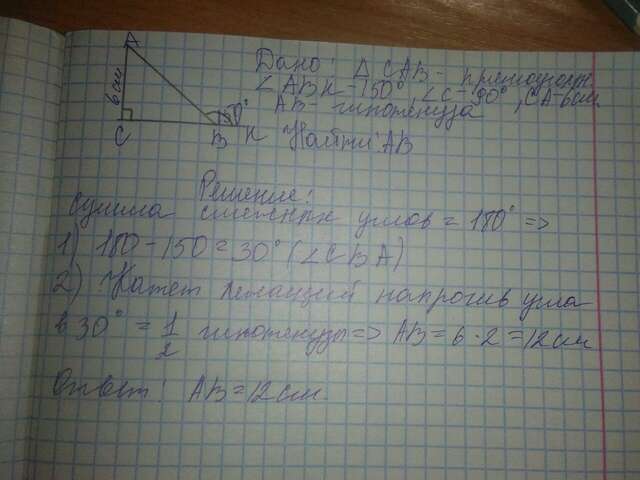 A
6 см
C
B
150°
K
Дано: Δ CAB - прямоугольн.
∠ABK - 150° ∠C - 90°, CA - 6 см
AB - гипотенуза
Найти: AB
Решение:
Сумма смежных углов = 180° =>
1) 180 - 150 = 30° (∠CBA)
2) Катет лежащий напротив угла
в 30° = 1/2 гипотенузы => AB = 6 · 2 = 12 см
Ответ: AB = 12 см.